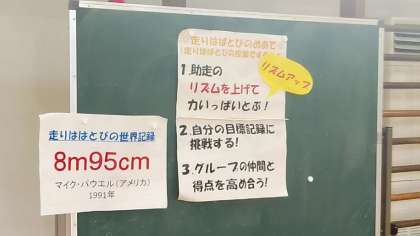 走りはばとびのめあて
走りはばとびの授業で
1.助走の
リズムを上げて
力いっぱいとぶ!
リズムアップ
2.自分の目標記録に
挑戦する!
3.グループの仲間と
得点を高め合う!
走りはばとびの世界記録
8m95cm
マイク・パウエル(アメリカ)
1991年